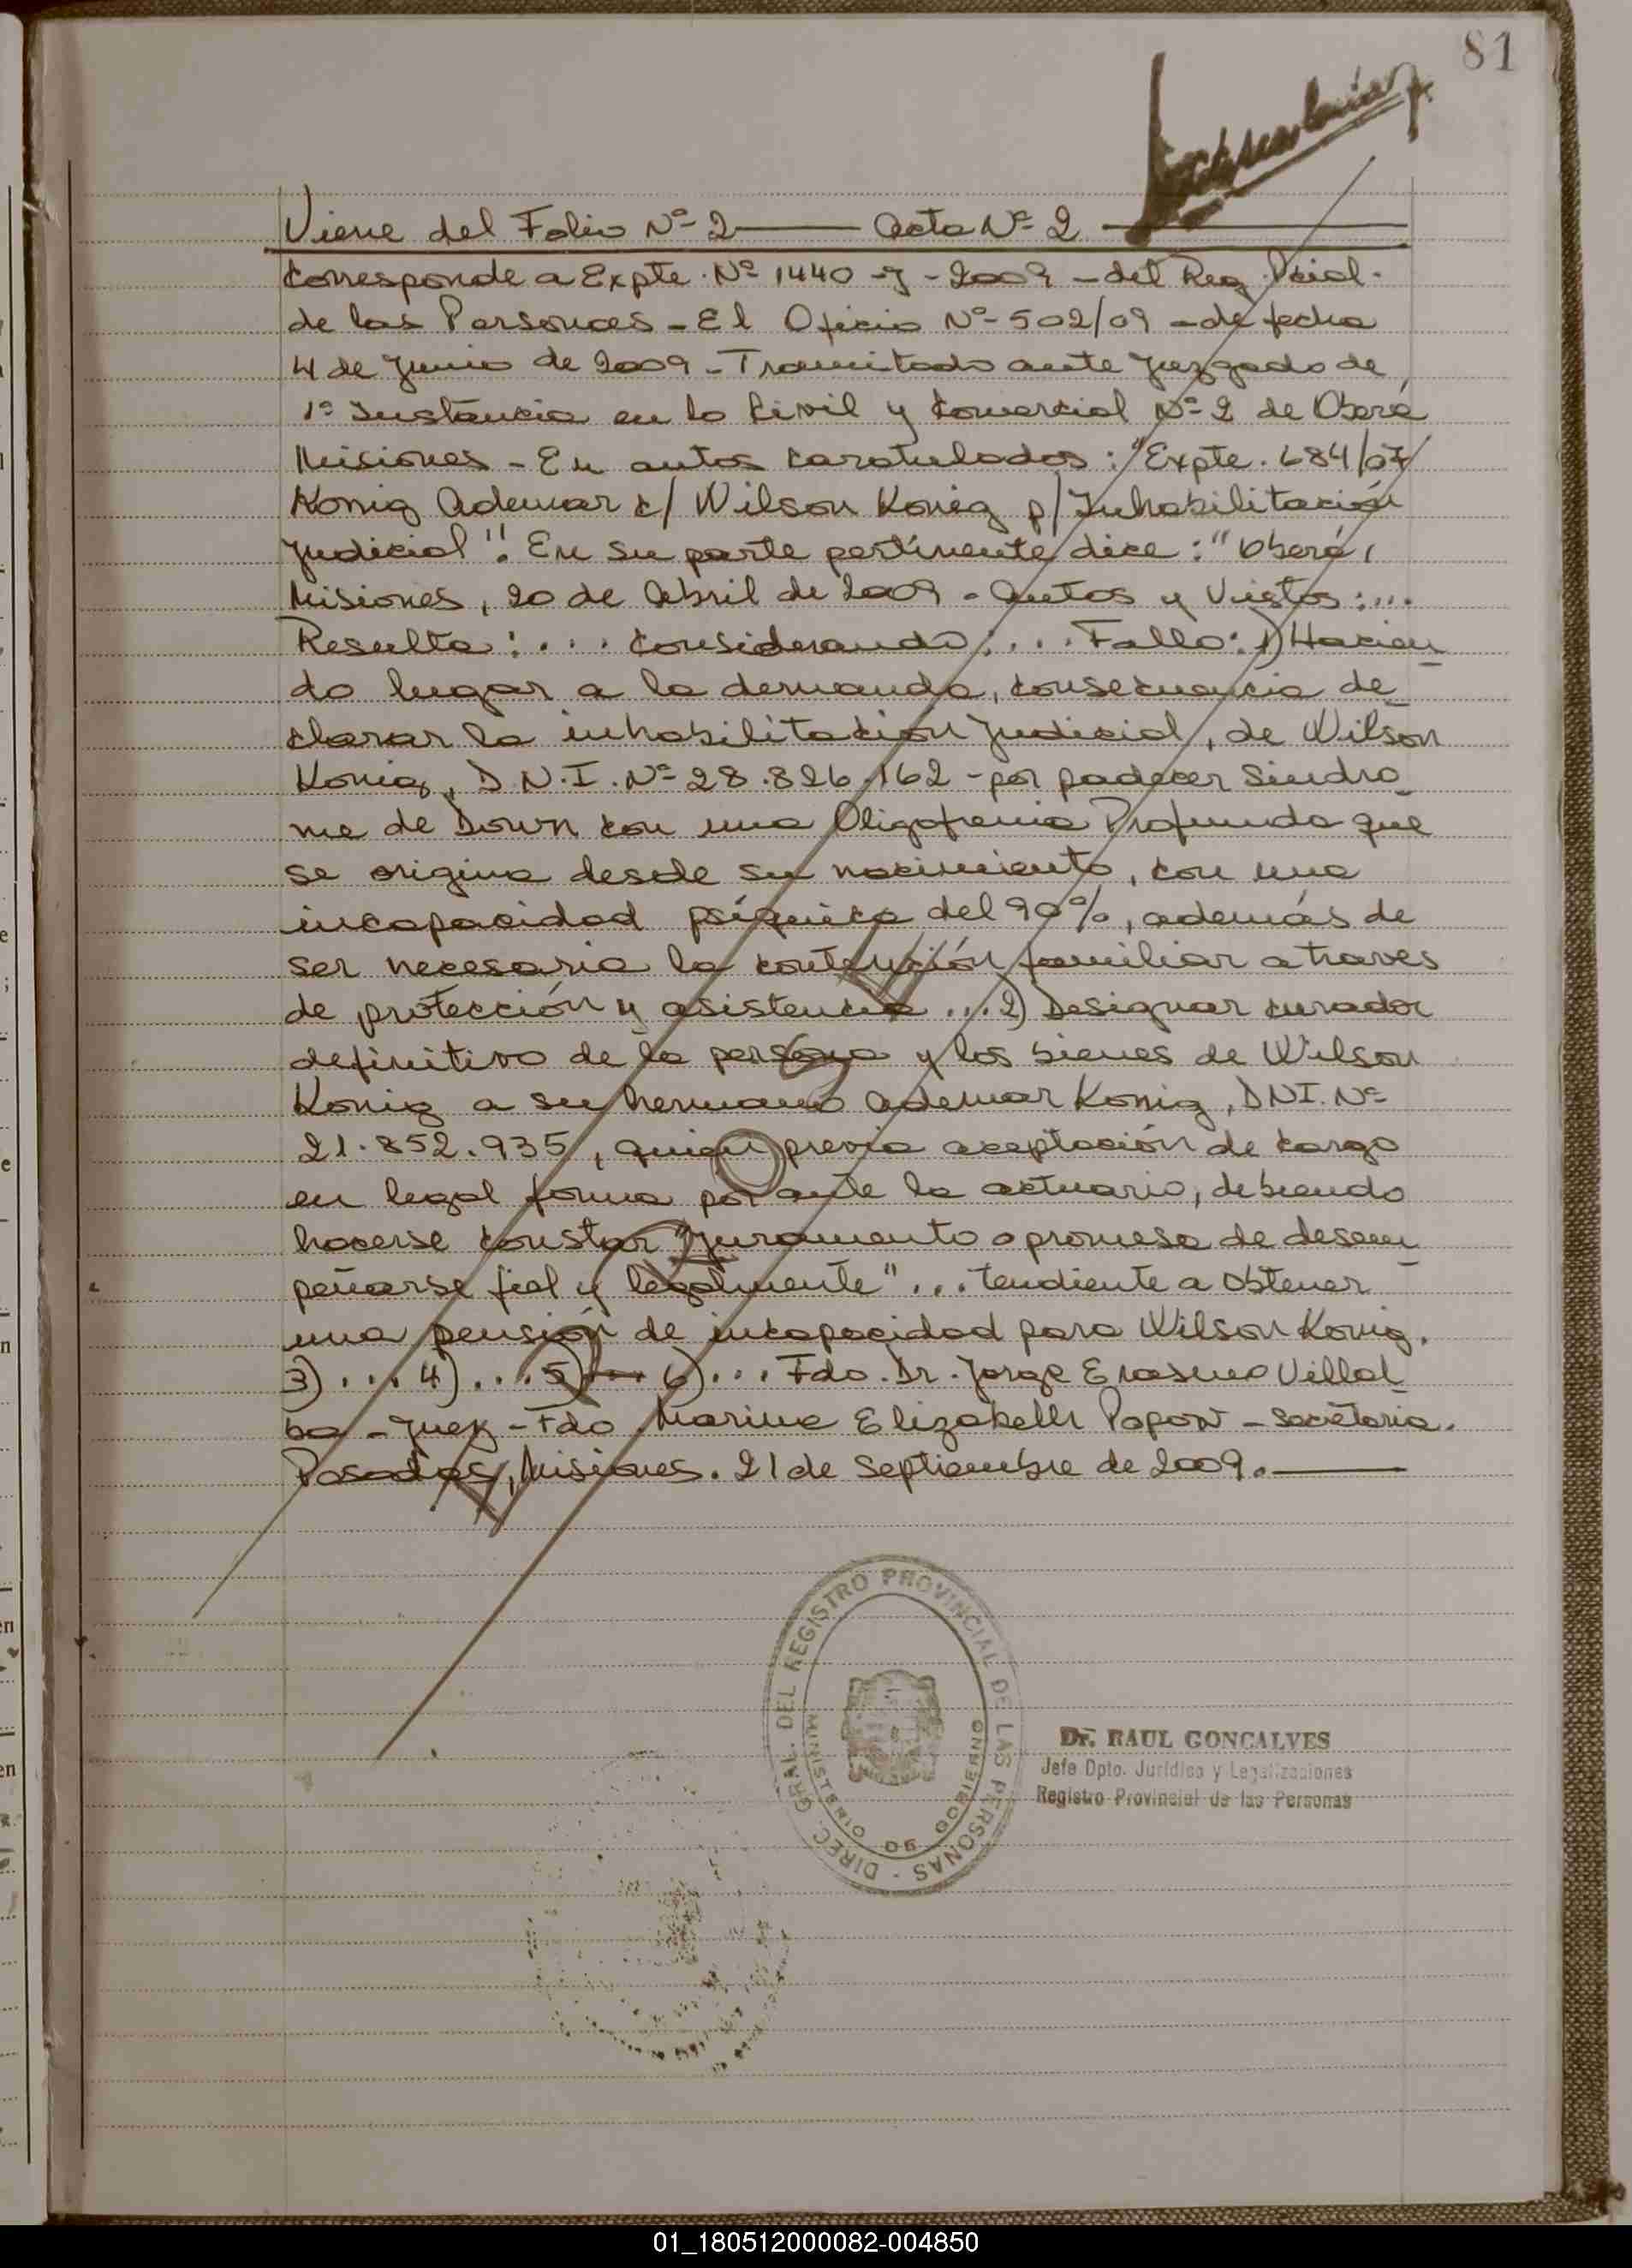 81
Viene del Folio Nº 2 —— Acta Nº 2 ——
Corresponde a Expte. Nº 1440 - J - 2009 - del Reg. Pcial.
de las Personas - El Oficio Nº 502/09 - de fecha
4 de Junio de 2009 - Tramitado ante Juzgado de
1º Instancia en lo Civil y Comercial Nº 2 de Oberá
Misiones - En autos caratulados: "Expte. 684/07
Konig Ademar c/ Wilson Konig p/ Inhabilitación
Judicial". En su parte pertinente dice: "Oberá,
Misiones, 20 de Abril de 2009 - Autos y Vistos:...
Resulta: ... Considerando: ... Fallo: 1) Hacien
do lugar a la demanda, consecuencia de
clarar la inhabilitación Judicial, de Wilson
Konig, D.N.I. Nº 28.826.162 - por padecer Sindro
me de Down con una Oligofrenia Profunda que
se origina desde su nacimiento, con una
incapacidad psíquica del 90%, además de
ser necesaria la contención familiar a traves
de protección y asistencia ... 2) Designar curador
definitivo de la persona y los bienes de Wilson
Konig a su hermano Ademar Konig, DNI. Nº
21.852.935, quien previa aceptación de cargo
en legal forma por ante la actuario, debiendo
hacerse constar "Juramento o promesa de desem
peñarse fiel y legalmente" ... tendiente a obtener
una pensión de incapacidad para Wilson Konig.
3) ... 4) ... 5) ... 6) ... Fdo. Dr. Jorge Erasmo Villal
ba - Juez - Fdo. Marina Elizabeth Popow - Secretaria.
Posadas, Misiones. 21 de Septiembre de 2009. ——
DIREC. GRAL. DEL REGISTRO PROVINCIAL DE LAS PERSONAS
MINISTERIO DE GOBIERNO
Dr. RAUL GONCALVES
Jefe Dpto. Jurídico y Legalizaciones
Registro Provincial de las Personas
01_180512000082-004850